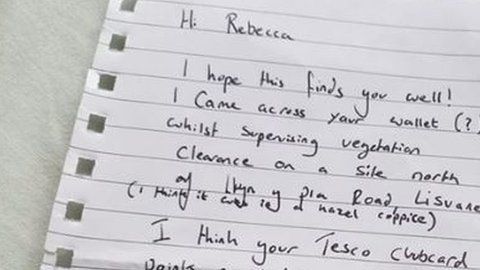 Hi Rebecca
I hope this finds you well!
I came across your wallet (?)
whilst supervising vegetation
clearance on a site north
of Llwyn y Pia Road, Lisvane
(I think it was in a hazel coppice)
I think your Tesco Clubcard
points